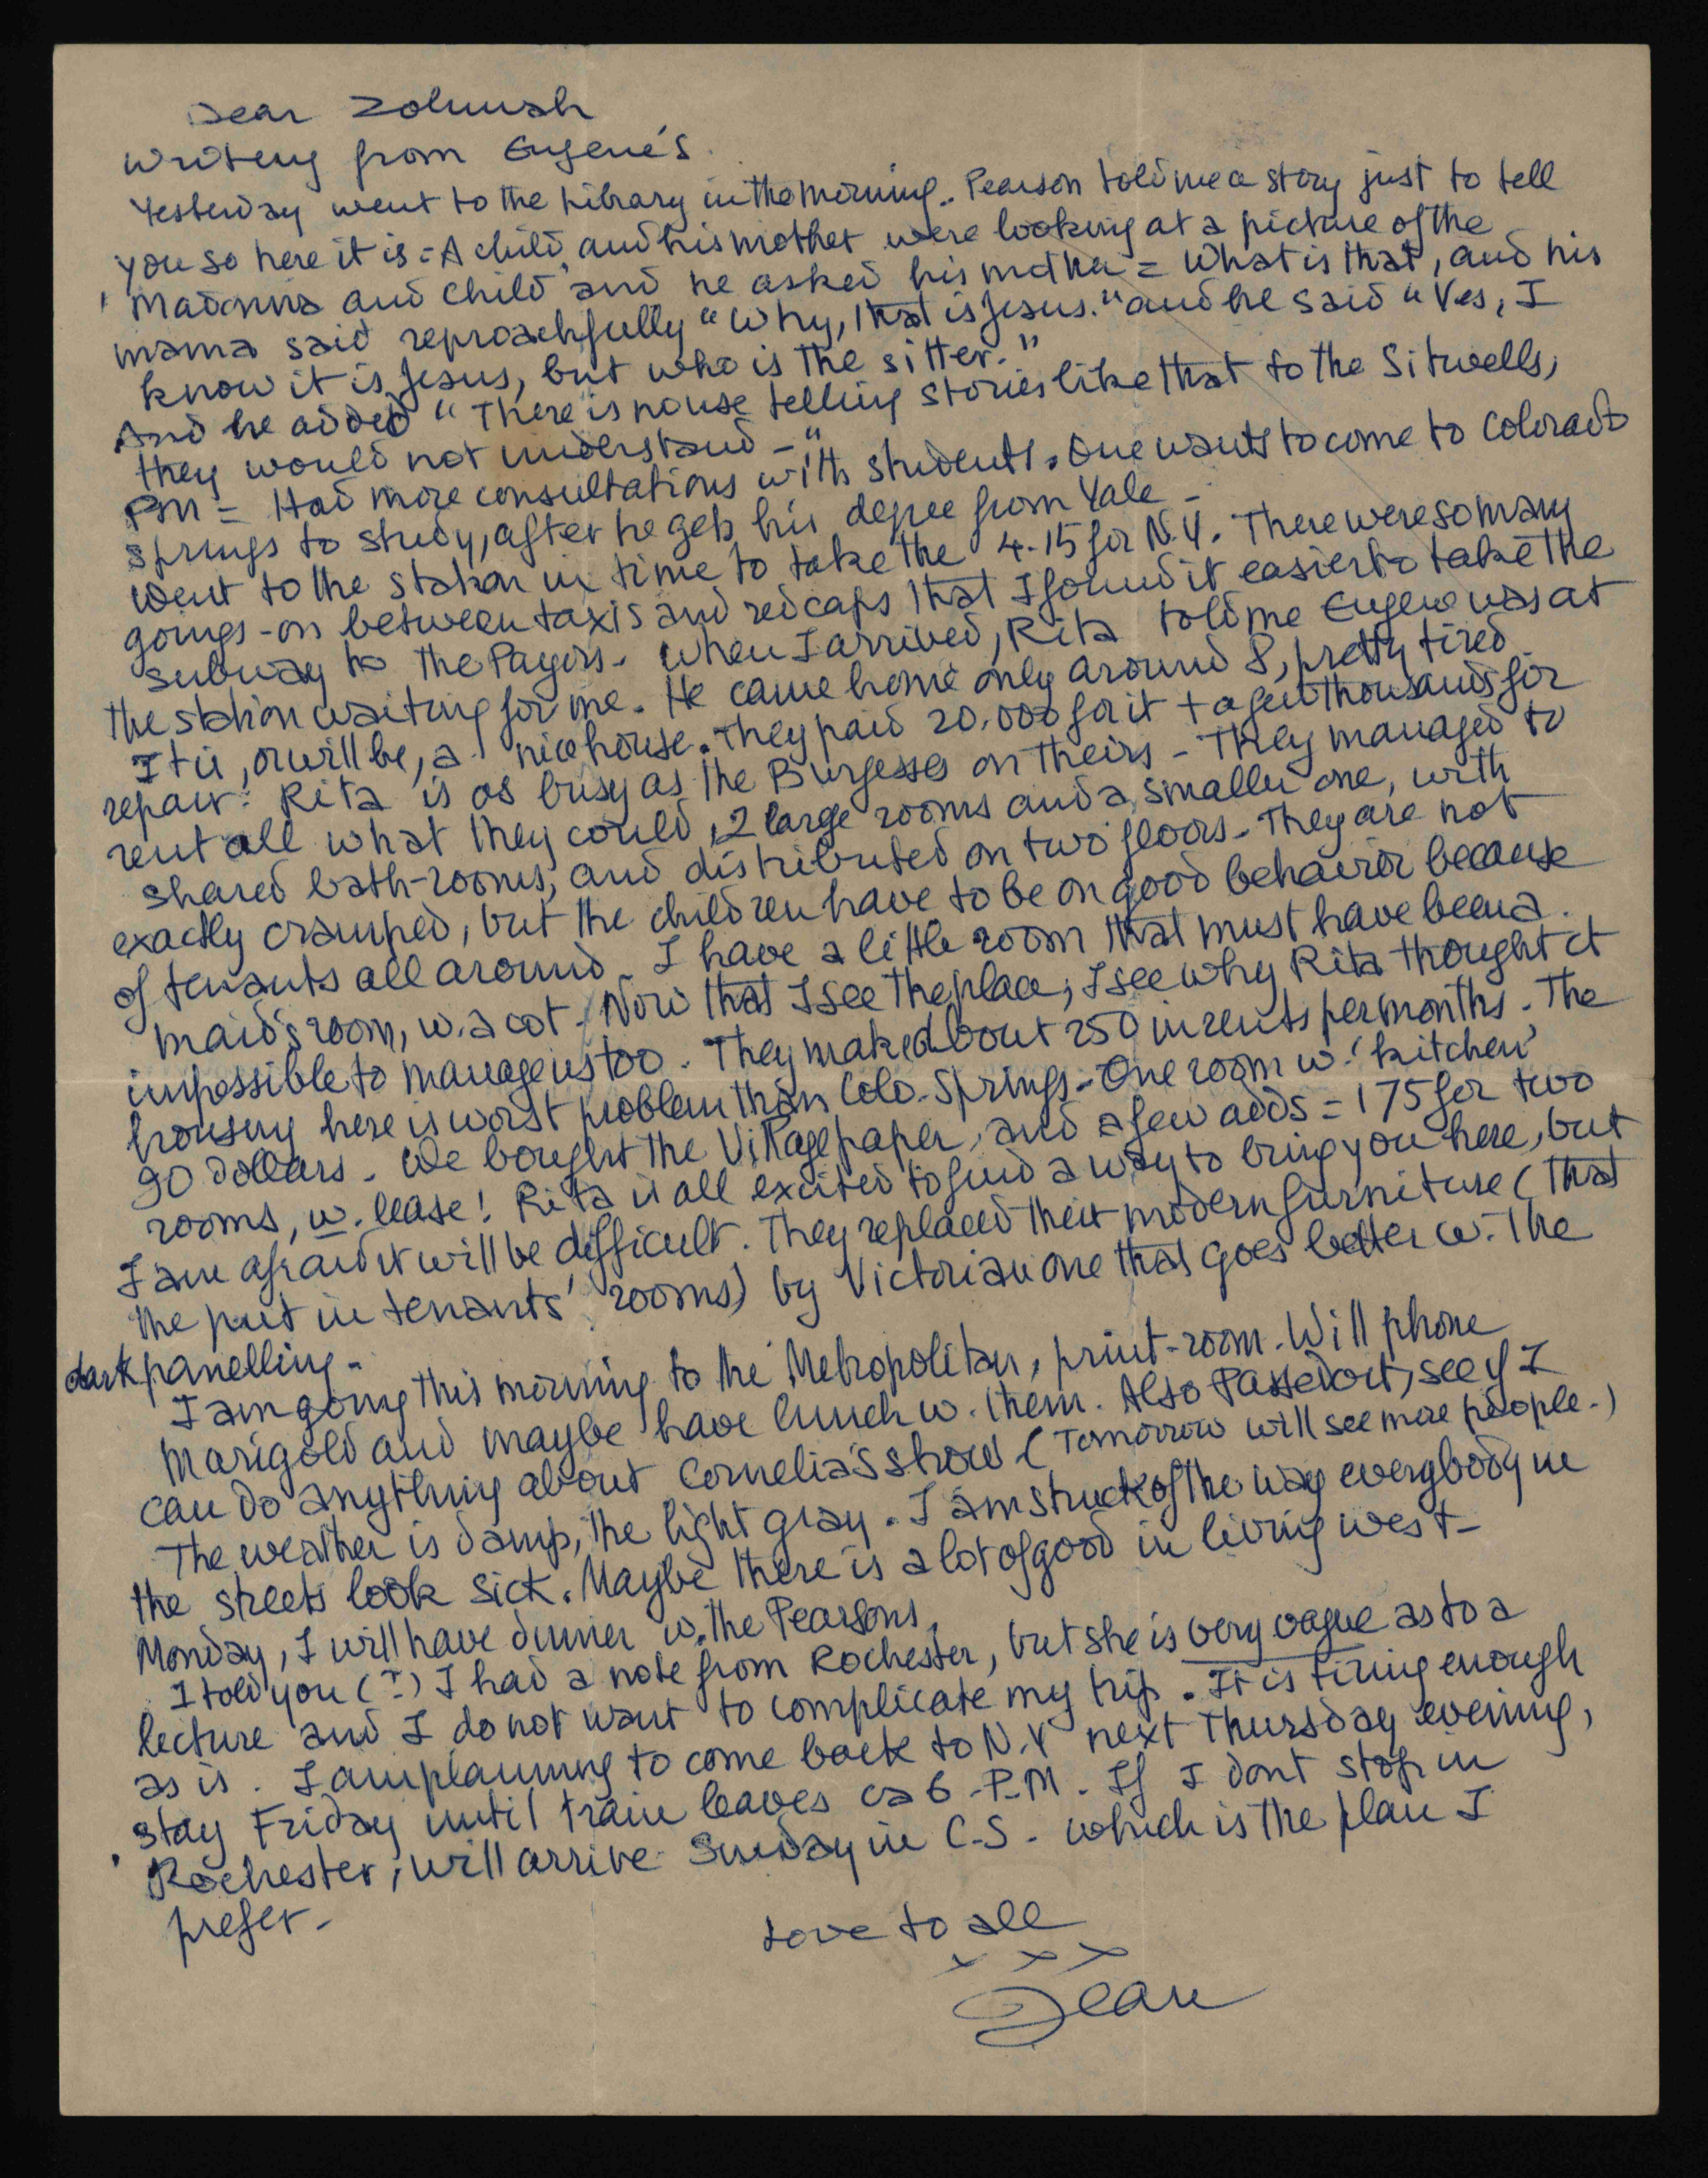 Dear Zohmah
Writing from Eugene's.
Yesterday went to the Library in the morning. Pearson told me a story just to tell
you so here it is = A child and his mother were looking at a picture of the
Madonna and child and he asked his mother = What is that, and his
mama said reproachfully "Why, that is Jesus." and he said "Yes, I
know it is Jesus, but who is the sitter."
And he added "There is no use telling stories like that to the Sitwells,
they would not understand -"
PM = Had more consultations with students. One wants to come to Colorado
Springs to study, after he gets his degree from Yale -
Went to the station in time to take the 4.15 for N.Y. There were so many
goings-on between taxis and redcaps that I found it easier to take the
subway to the Payors. When I arrived, Rita told me Eugene was at
the station waiting for me. He came home only around 8, pretty tired.
It is, or will be, a nice house. They paid 20.000 for it + a few thousands for
repair. Rita is as busy as the Burgesses on theirs - They managed to
rent all what they could, 2 large rooms and a smaller one, with
shared bath-rooms, and distributed on two floors - They are not
exactly cramped, but the children have to be on good behavior because
of tenants all around. I have a little room that must have been a
maid's room, w. a cot - Now that I see the place, I see why Rita thought it
impossible to manage us too. They make about 250 in rents per months. The
housing here is worst problem than Colo. Springs - One room w. 'kitchen'
90 dollars. We bought the Village paper, and a few adds = 175 for two
rooms, w. lease! Rita is all excited to find a way to bring you here, but
I am afraid it will be difficult. They replaced their modern furniture (that
the put in tenants' rooms) by Victorian one that goes better w. the
dark panelling -
I am going this morning to the Metropolitan, print-room. Will phone
Marigold and maybe have lunch w. them. Also Passedoit, see if I
can do anything about Cornelia's show (Tomorrow will see more people.)
The weather is damp, the light gray. I am struck of the way everybody in
the streets look sick. Maybe there is a lot of good in living west -
Monday, I will have dinner w. the Pearsons.
I told you (?) I had a note from Rochester, but she is very vague as to a
lecture and I do not want to complicate my trip. It is tiring enough
as is. I am planning to come back to N.Y next Thursday evening,
stay Friday until train leaves ca 6 - P.M. If I dont stop in
Rochester, will arrive Sunday in C.S. - which is the plan I
prefer -
Love to all
x x x
Jean